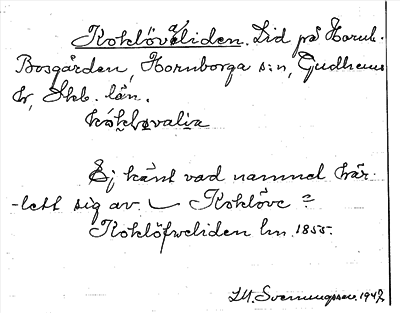 Koklövaliden. Lid på Hornb.
Bosgården, Hornborga s:n, Gudhems
hr, Skb. län.
kòkløvalia
Ej känt vad namnet här-
-lett sig av. — Koklöve =
Koklöfveliden lm. 1855.
I.M. Svenungsson. 1947